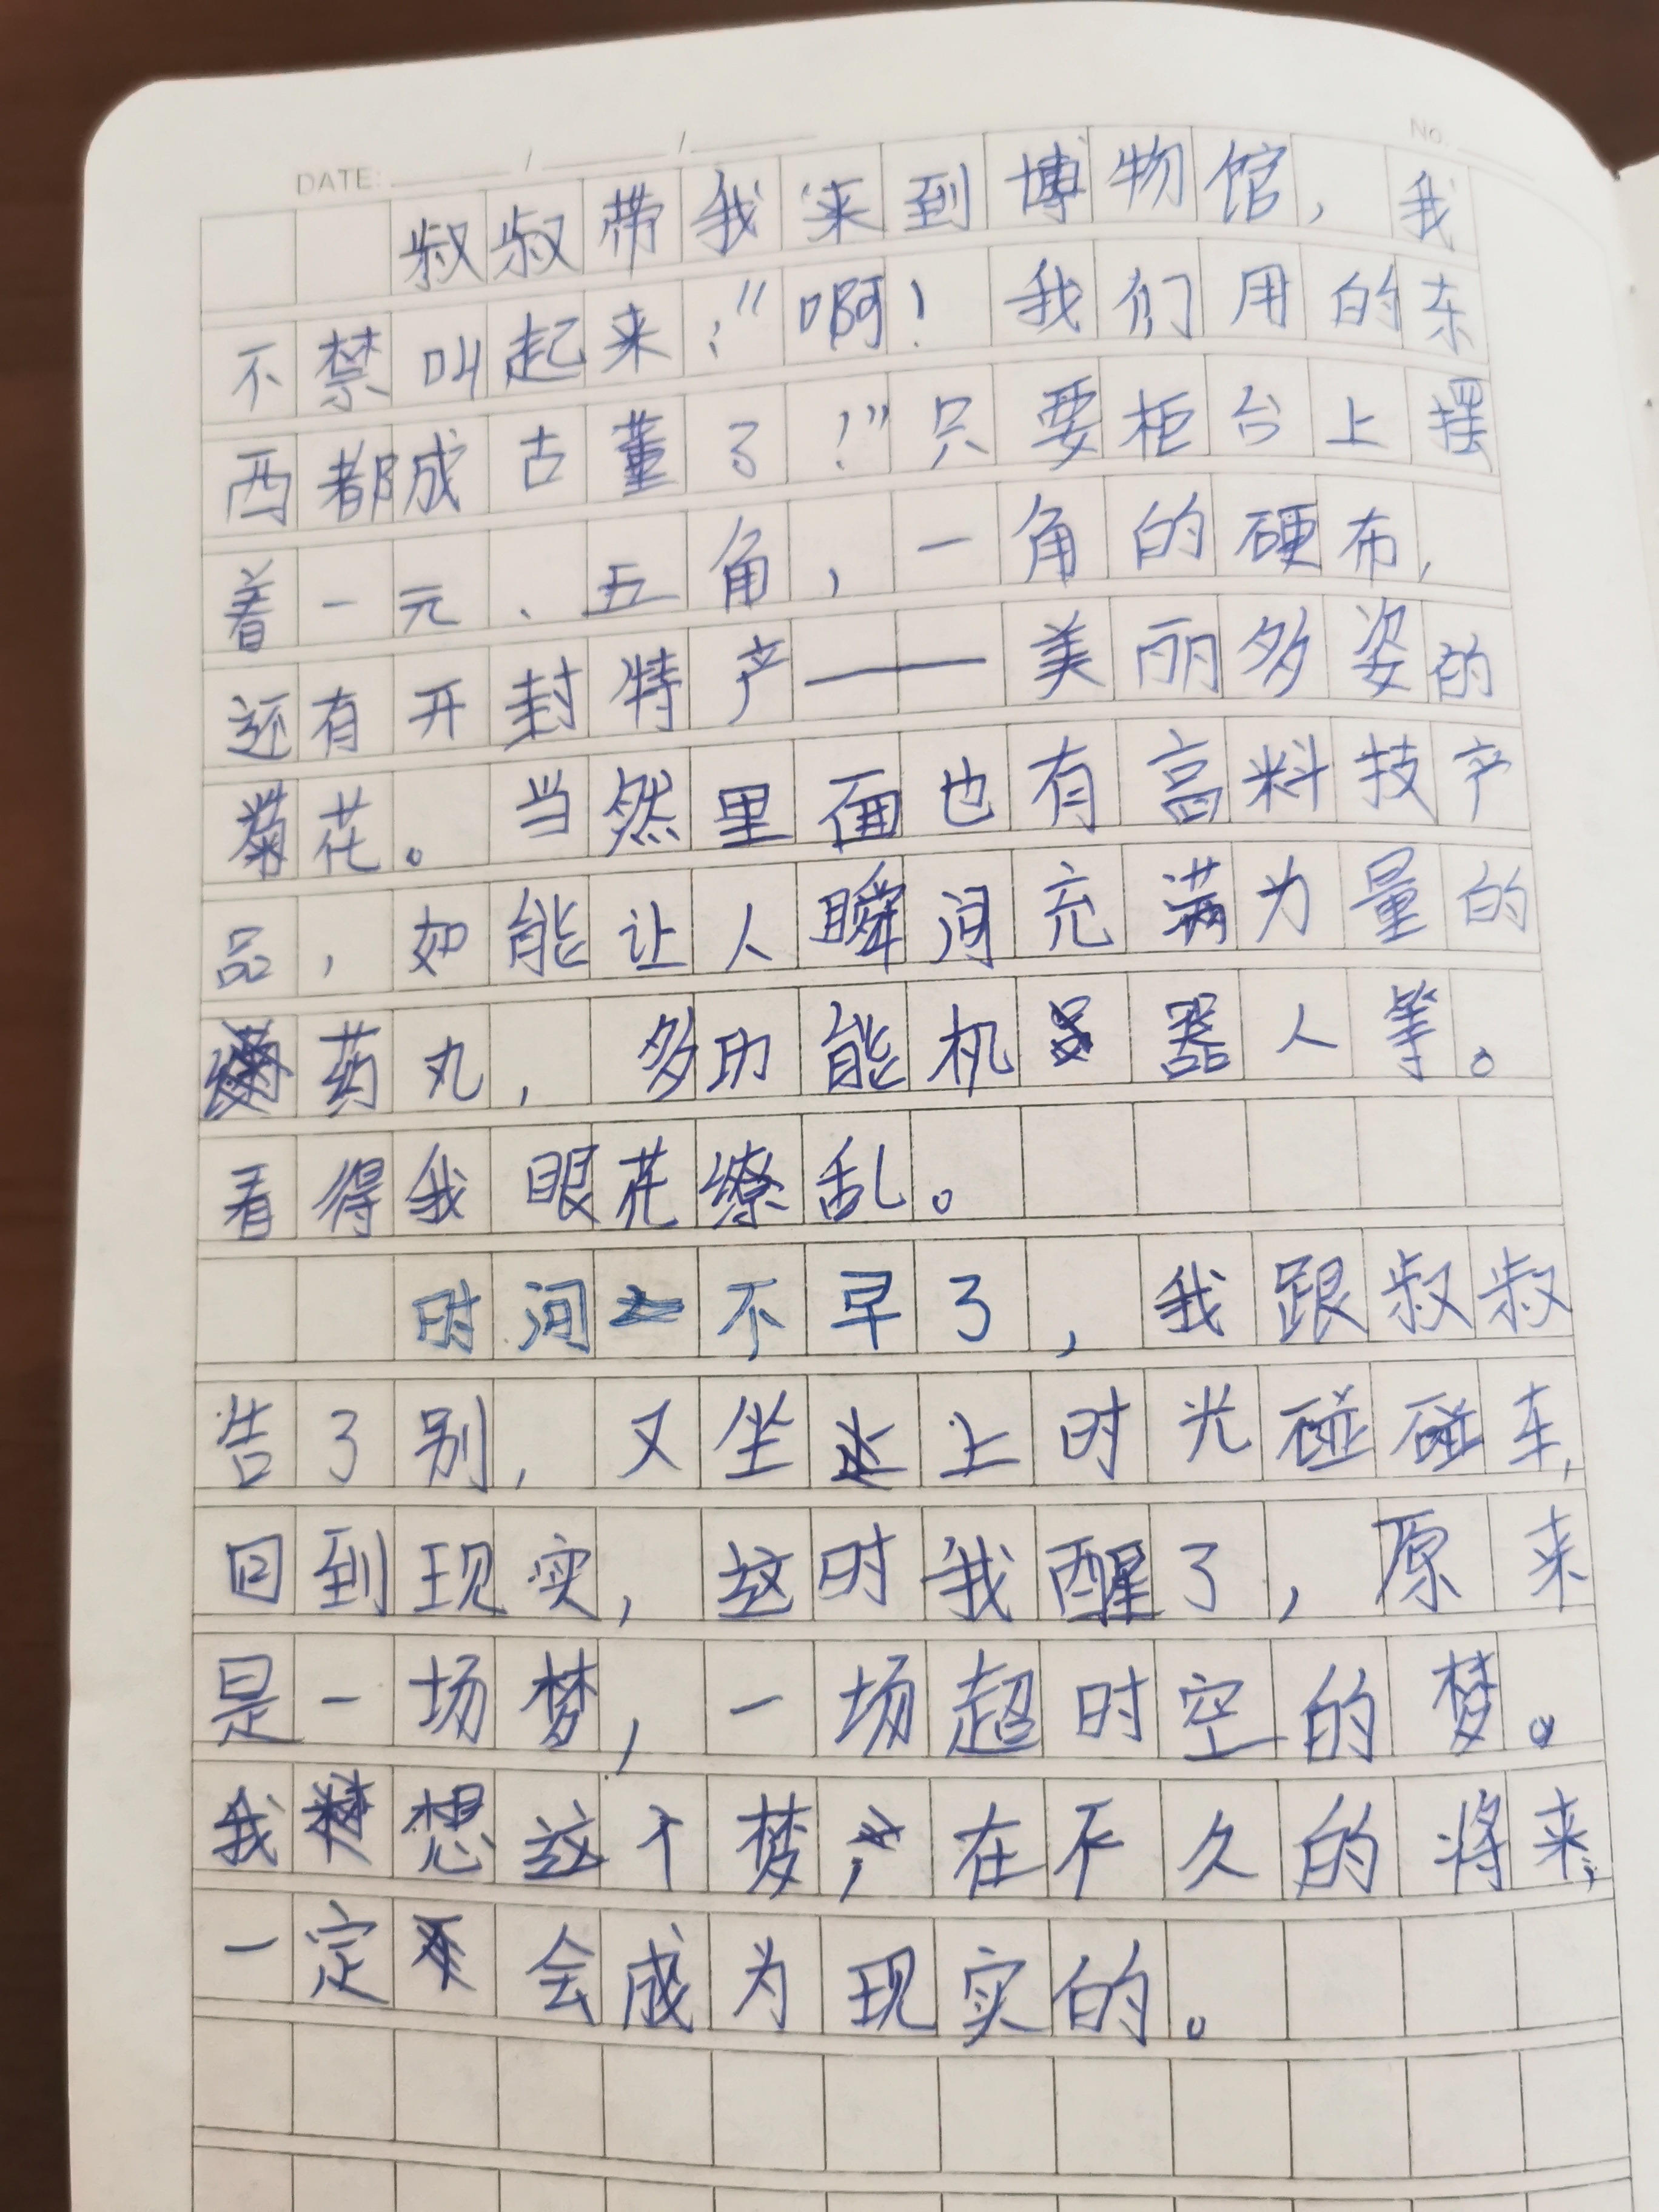 DATE: ____ / ____ / ____ No.
叔叔带我来到博物馆，我
不禁叫起来：“啊！我们用的东
西都成古董了！”只要柜台上摆
着一元、五角，一角的硬布，
还有开封特产——美丽多姿的
菊花。当然里面也有高料技产
品，如能让人瞬间充满力量的
药丸，多功能机器人等。
看得我眼花缭乱。
时间不早了，我跟叔叔
告了别，又坐上时光碰碰车，
回到现实，这时我醒了，原来
是一场梦，一场超时空的梦。
我想这个梦，在不久的将来，
一定会成为现实的。